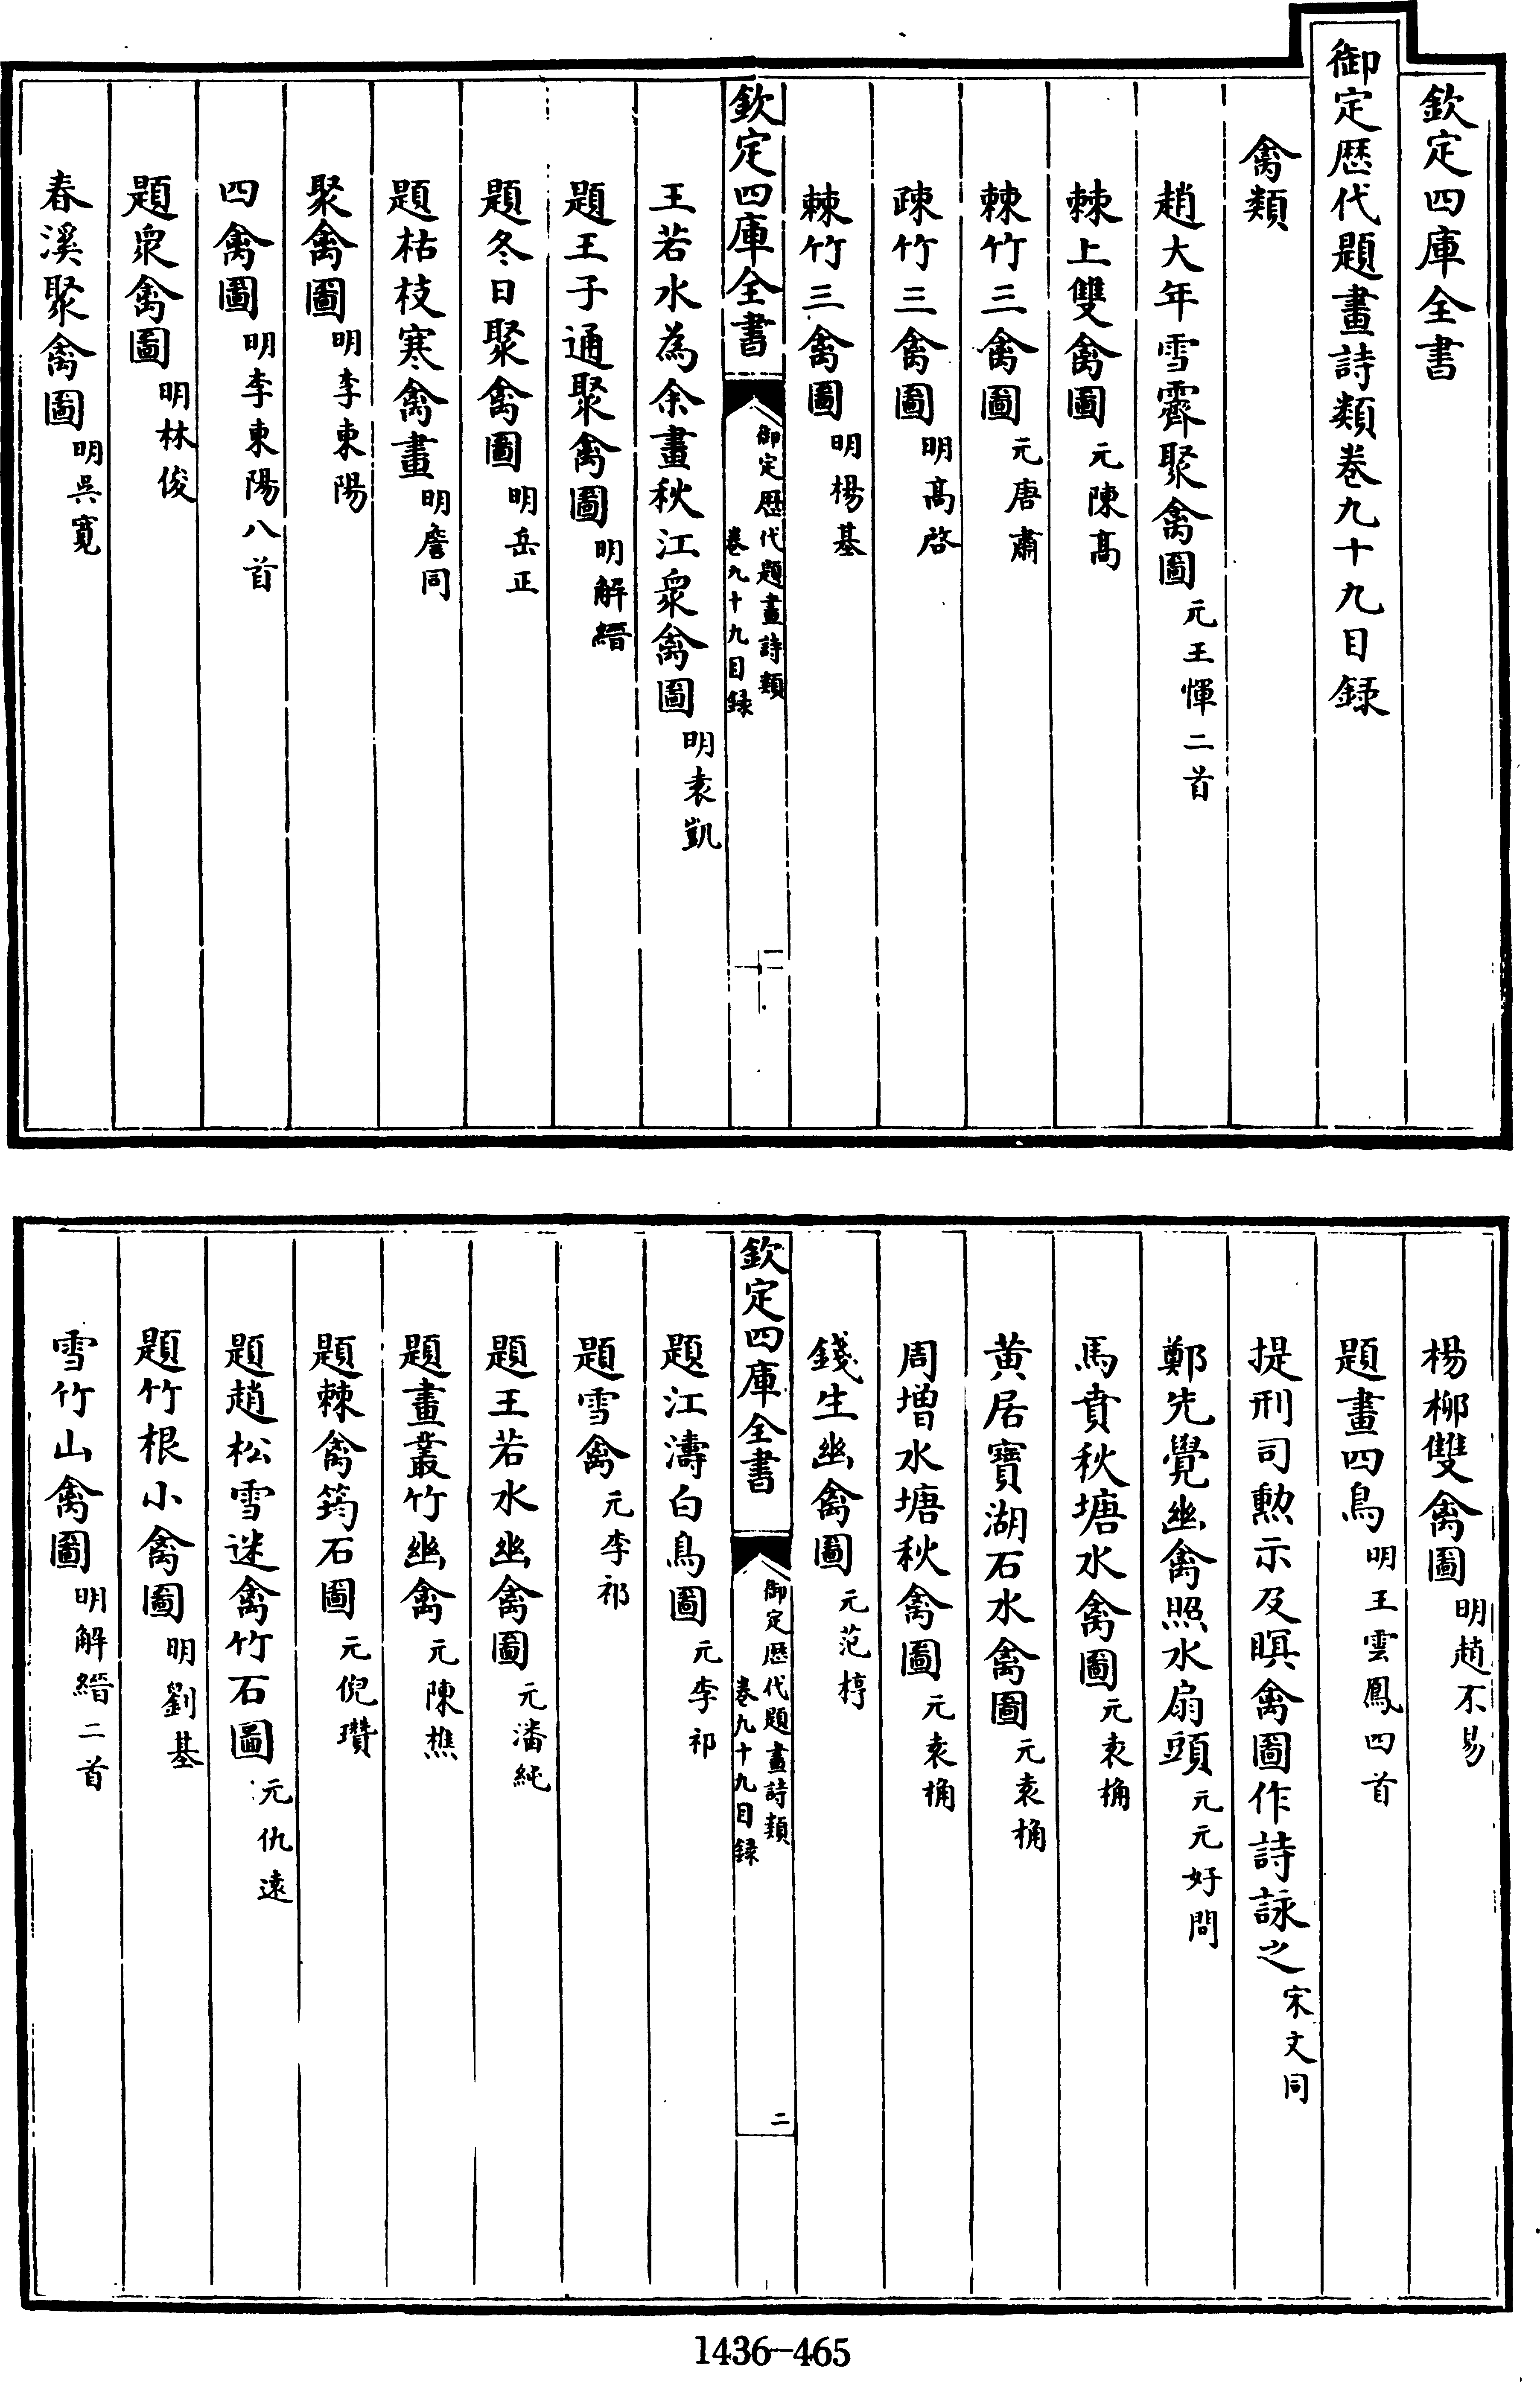 欽定四庫全書
御定歷代題畫詩類卷九十九目録
禽類
趙大年雪霽聚禽圖元王惲二首
棘上雙禽圖元陳髙
棘竹三禽圖元唐肅
疎竹三禽圖明髙啓
棘竹三禽圖明楊基
欽定四庫全書
御定歷代題畫詩類
卷九十九目録
王若水為余畫秋江衆禽圖明袁凱
題王子通聚禽圖明解縉
題冬日聚禽圖明岳正
題枯枝寒禽畫明詹同
聚禽圖明李東陽
四禽圖明李東陽八首
題衆禽圖明林俊
春溪聚禽圖明吳寛
楊柳雙禽圖明趙不易
題畫四鳥明王雲鳳四首
提刑司勲示及瞑禽圖作詩詠之宋文同
鄭先覺幽禽照水扇頭元元好問
馬賁秋塘水禽圖元袁桷
黄居寶湖石水禽圖元袁桷
周增水塘秋禽圖元袁桷
錢生幽禽圖元范梈
欽定四庫全書
御定歷代題畫詩類
卷九十九目録
二
題江濤白鳥圖元李祁
題雪禽元李祁
題王若水幽禽圖元潘純
題畫叢竹幽禽元陳樵
題棘禽筠石圖元倪瓚
題趙松雪迷禽竹石圖元仇遠
題竹根小禽圖明劉基
雪竹山禽圖明解縉二首
1436-465